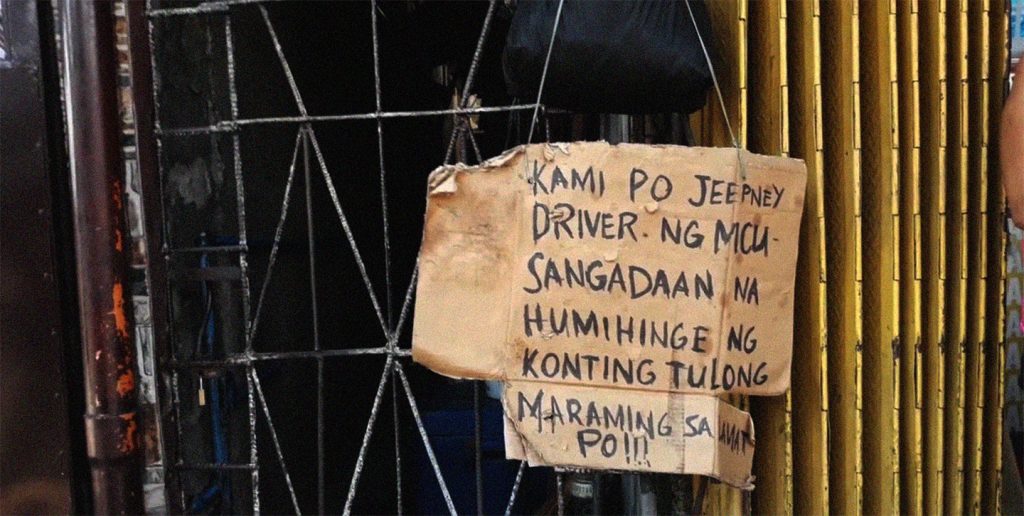 KAMI PO JEEPNEY
DRIVER. NG MCU-
SANGADAAN NA
HUMIHINGE NG
KONTING TULONG
MARAMING SALAMAT
PO!!!